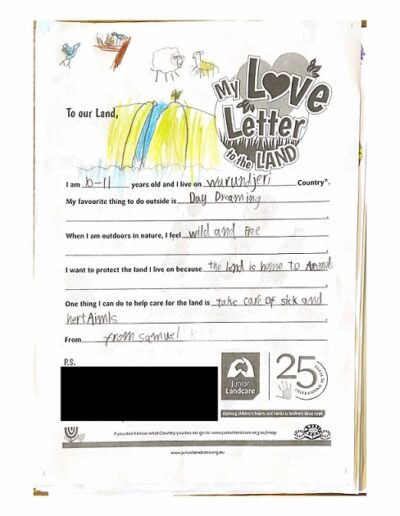 My Love
Letter
to the LAND
To our Land,
I am 10-11 years old and I live on Wurundjeri Country*.
My favourite thing to do outside is Day Dreaming
When I am outdoors in nature, I feel wild and free
I want to protect the land I live on because the land is home to Animals
One thing I can do to help care for the land is take care of sick and
hert Aimls
From from samuel
P.S.
Junior
Landcare
25 YEARS
CELEBRATING
If you don't know what Country you live on go to www.juniorlandcare.org.au/map
www.juniorlandcare.org.au